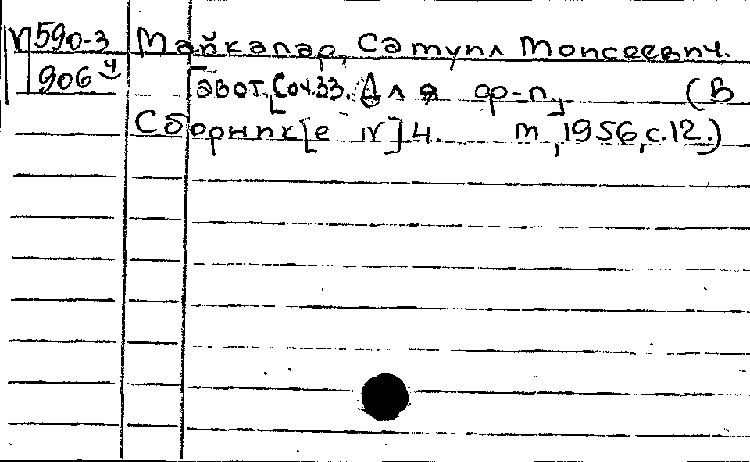 П590-3 Майкапар, Самуил Моисеевич.
906ч Гавот. Соч.33. Для ф-п. (В
Сборник[е IV] ч. М., 1956, с.12.)